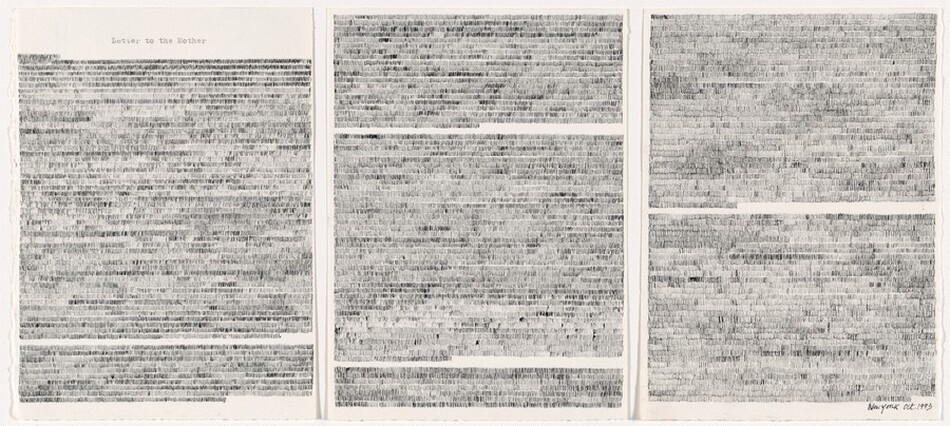 Letter to the Mother
New York Oct. 1993